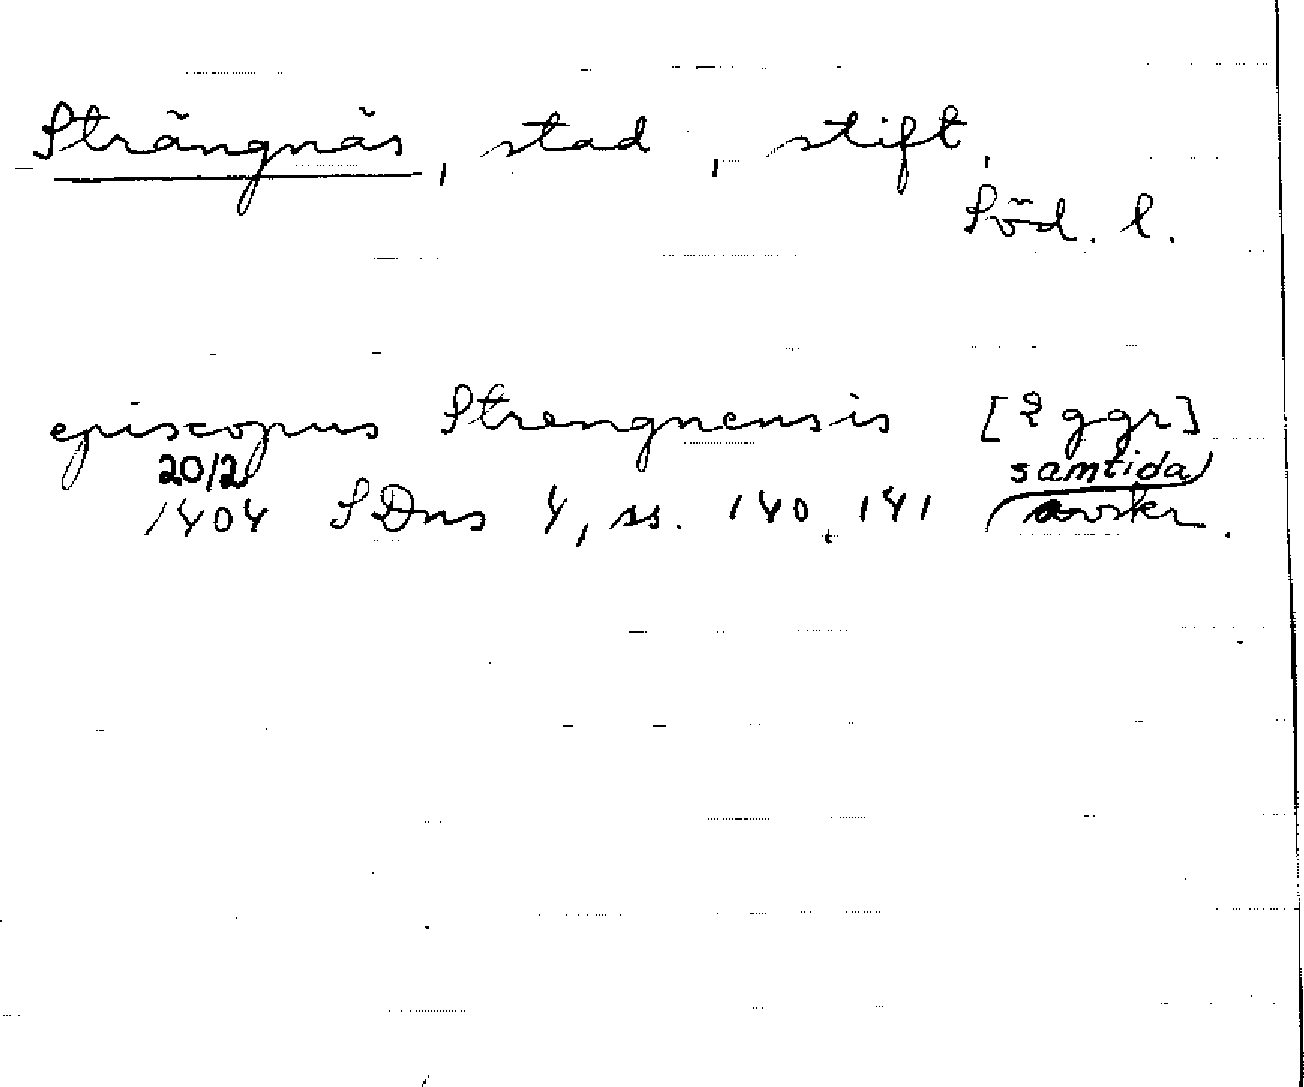 Strängnäs, stad, stift.
Söd. l.
episcopus Strengnensis [2 ggr]
20/2 samtida
1404 SDns 4, ss. 140, 141 avskr.